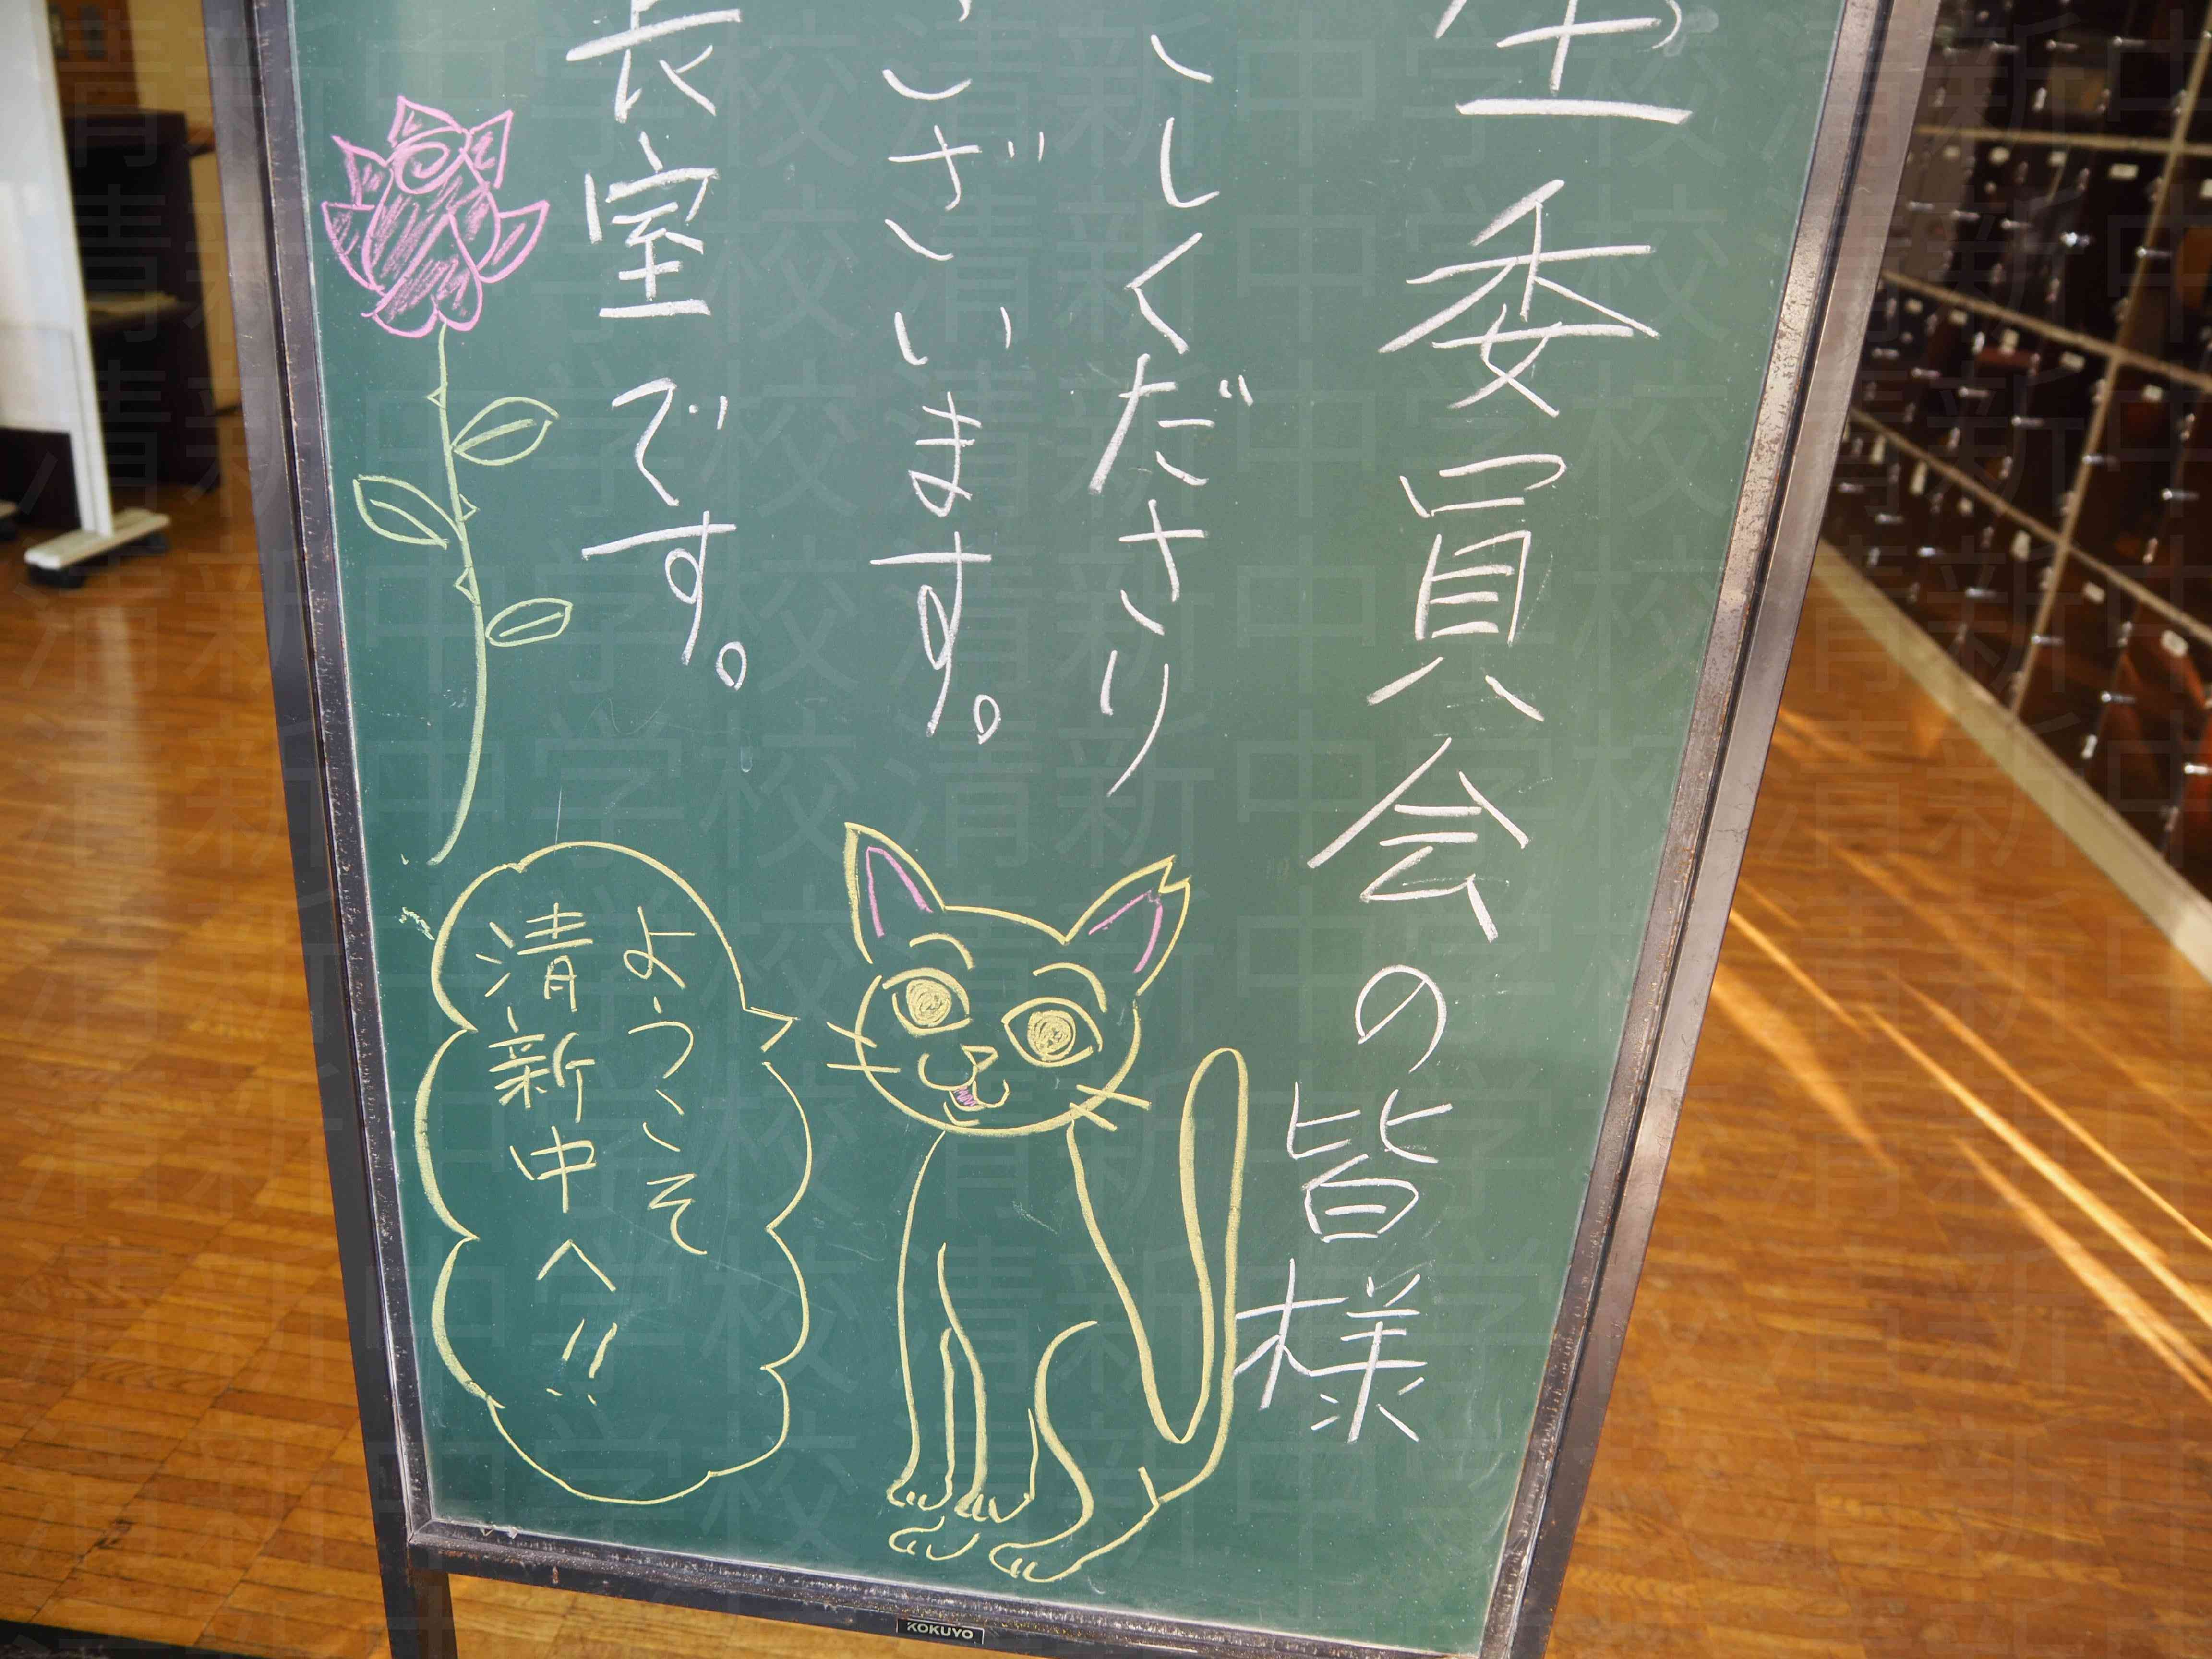 生委員会の皆様
こしくださり
ございます。
長室です。
ようこそ
清新中へ!!
KOKUYO
清新中学校